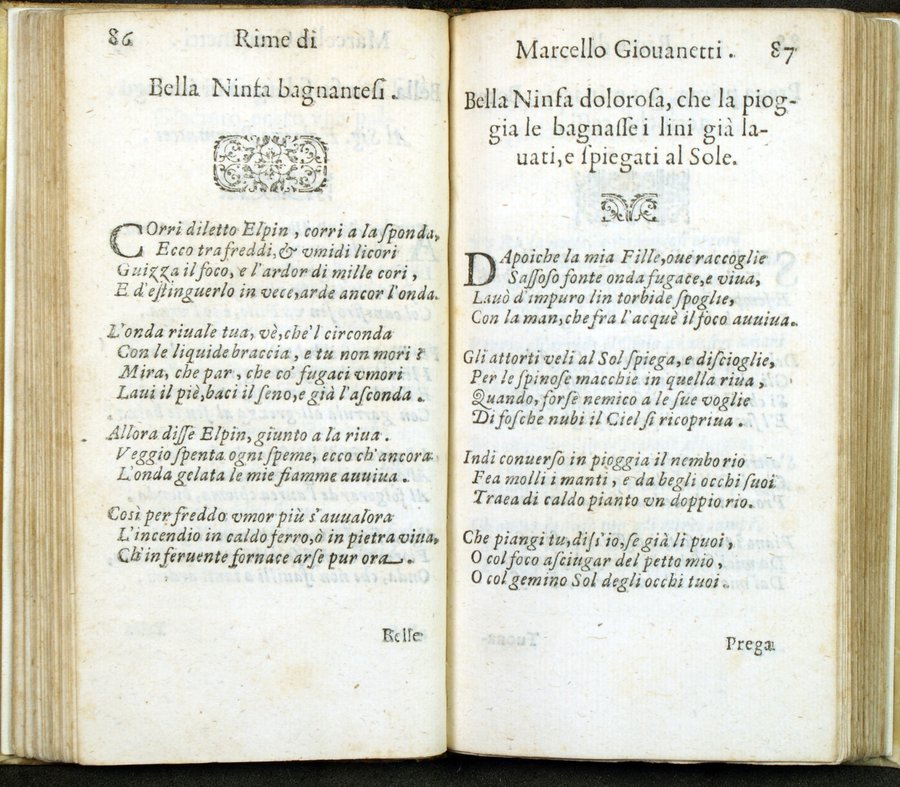 86 Rime di
Bella Ninfa bagnantesi.
COrri diletto Elpin, corri a la ſponda,
Ecco tra freddi, & vmidi licori
Guizza il foco, e l'ardor di mille cori,
E d'eſtinguerlo in vece, arde ancor l'onda.
L'onda riuale tua, vè, che'l circonda
Con le liquide braccia, e tu non mori?
Mira, che par, che co' fugaci vmori
Laui il piè, baci il ſeno, e già l'aſconda.
Allora diſſe Elpin, giunto a la riua.
Veggio spenta ogni ſpeme, ecco ch'ancora
L'onda gelata le mie fiamme auuiua.
Così per freddo vmor più s'auualora
L'incendio in caldo ferro, ò in pietra viua,
Ch'in feruente fornace arſe pur ora.
Belle
Marcello Giouanetti. 87
Bella Ninfa doloroſa, che la piog-
gia le bagnaſſe i lini già la-
uati, e ſpiegati al Sole.
DApoiche la mia Fille, oue raccoglie
Saſſoso fonte onda fugace, e viua,
Lauò d'impuro lin torbide ſpoglie,
Con la man, che fra l'acquè il foco auuiua.
Gli attorti veli al Sol ſpiega, e diſcioglie,
Per le ſpinose macchie in quella riua,
Quando, forſe nemico a le ſue voglie
Di foſche nubi il Ciel si ricopriua.
Indi conuerſo in pioggia il nembo rio
Fea molli i manti, e da begli occhi ſuoi
Traea di caldo pianto vn doppio rio.
Che piangi tu, diſs'io, ſe già li puoi,
O col foco aſciugar del petto mio,
O col gemino Sol degli occhi tuoi.
Prega